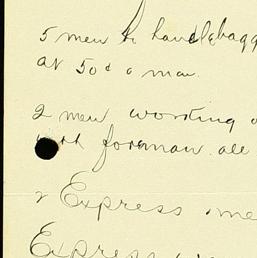 5 men to handle bagg
at 50¢ a man.
2 men working o
foreman. all
2 Express me
Express